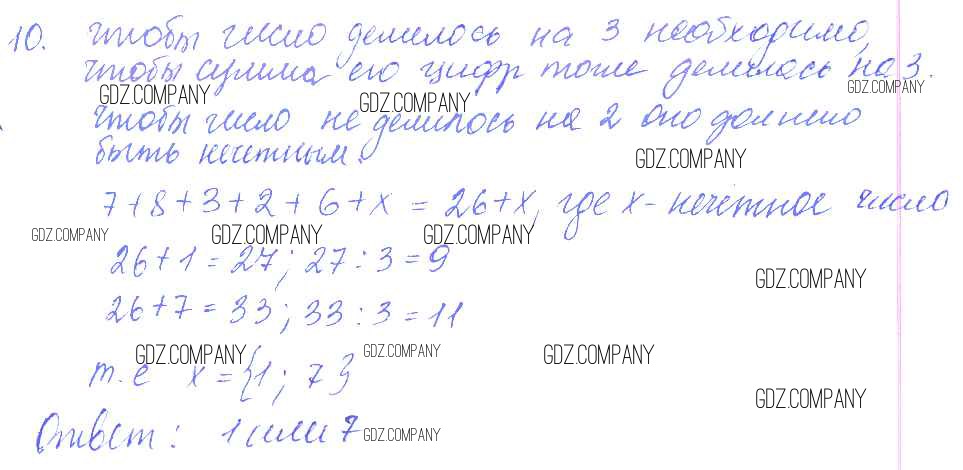 10. Чтобы число делилось на 3 необходимо,
чтобы сумма его цифр тоже делилась на 3.
GDZ.COMPANY GDZ.COMPANY GDZ.COMPANY
Чтобы число не делилось на 2 оно должно
быть нечетным.
GDZ.COMPANY
7+8+3+2+6+x = 26+x, где x - нечетное число
GDZ.COMPANY GDZ.COMPANY GDZ.COMPANY
26+1=27; 27:3=9
GDZ.COMPANY
26+7=33; 33:3=11
GDZ.COMPANY GDZ.COMPANY GDZ.COMPANY
т.е x={1; 7}
GDZ.COMPANY
Ответ: 1 или 7
GDZ.COMPANY